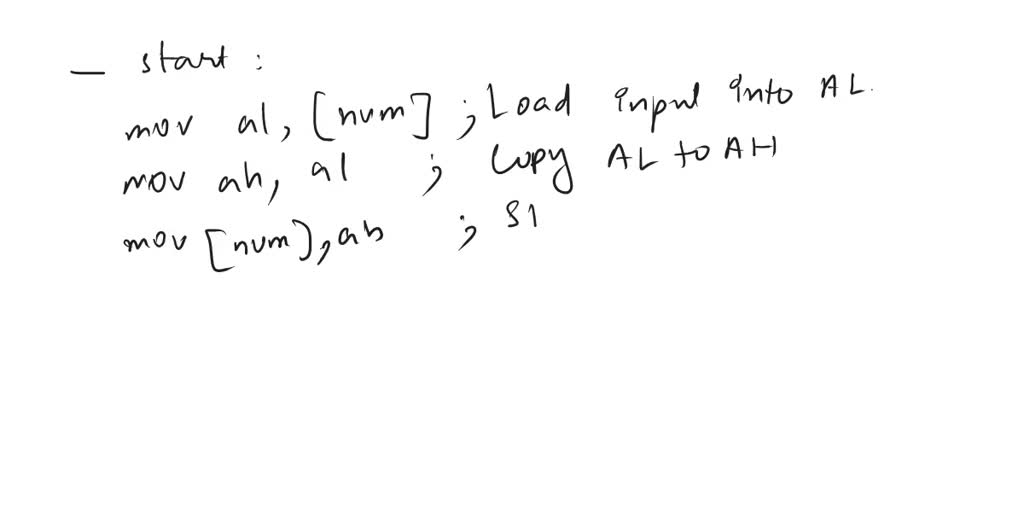 _ start :
mov al, [num] ; Load input into AL.
mov ah, al ; Copy AL to AH
mov [num], ah ; S1